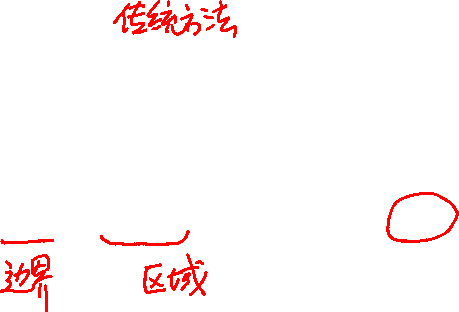 传统方法
边界 区域